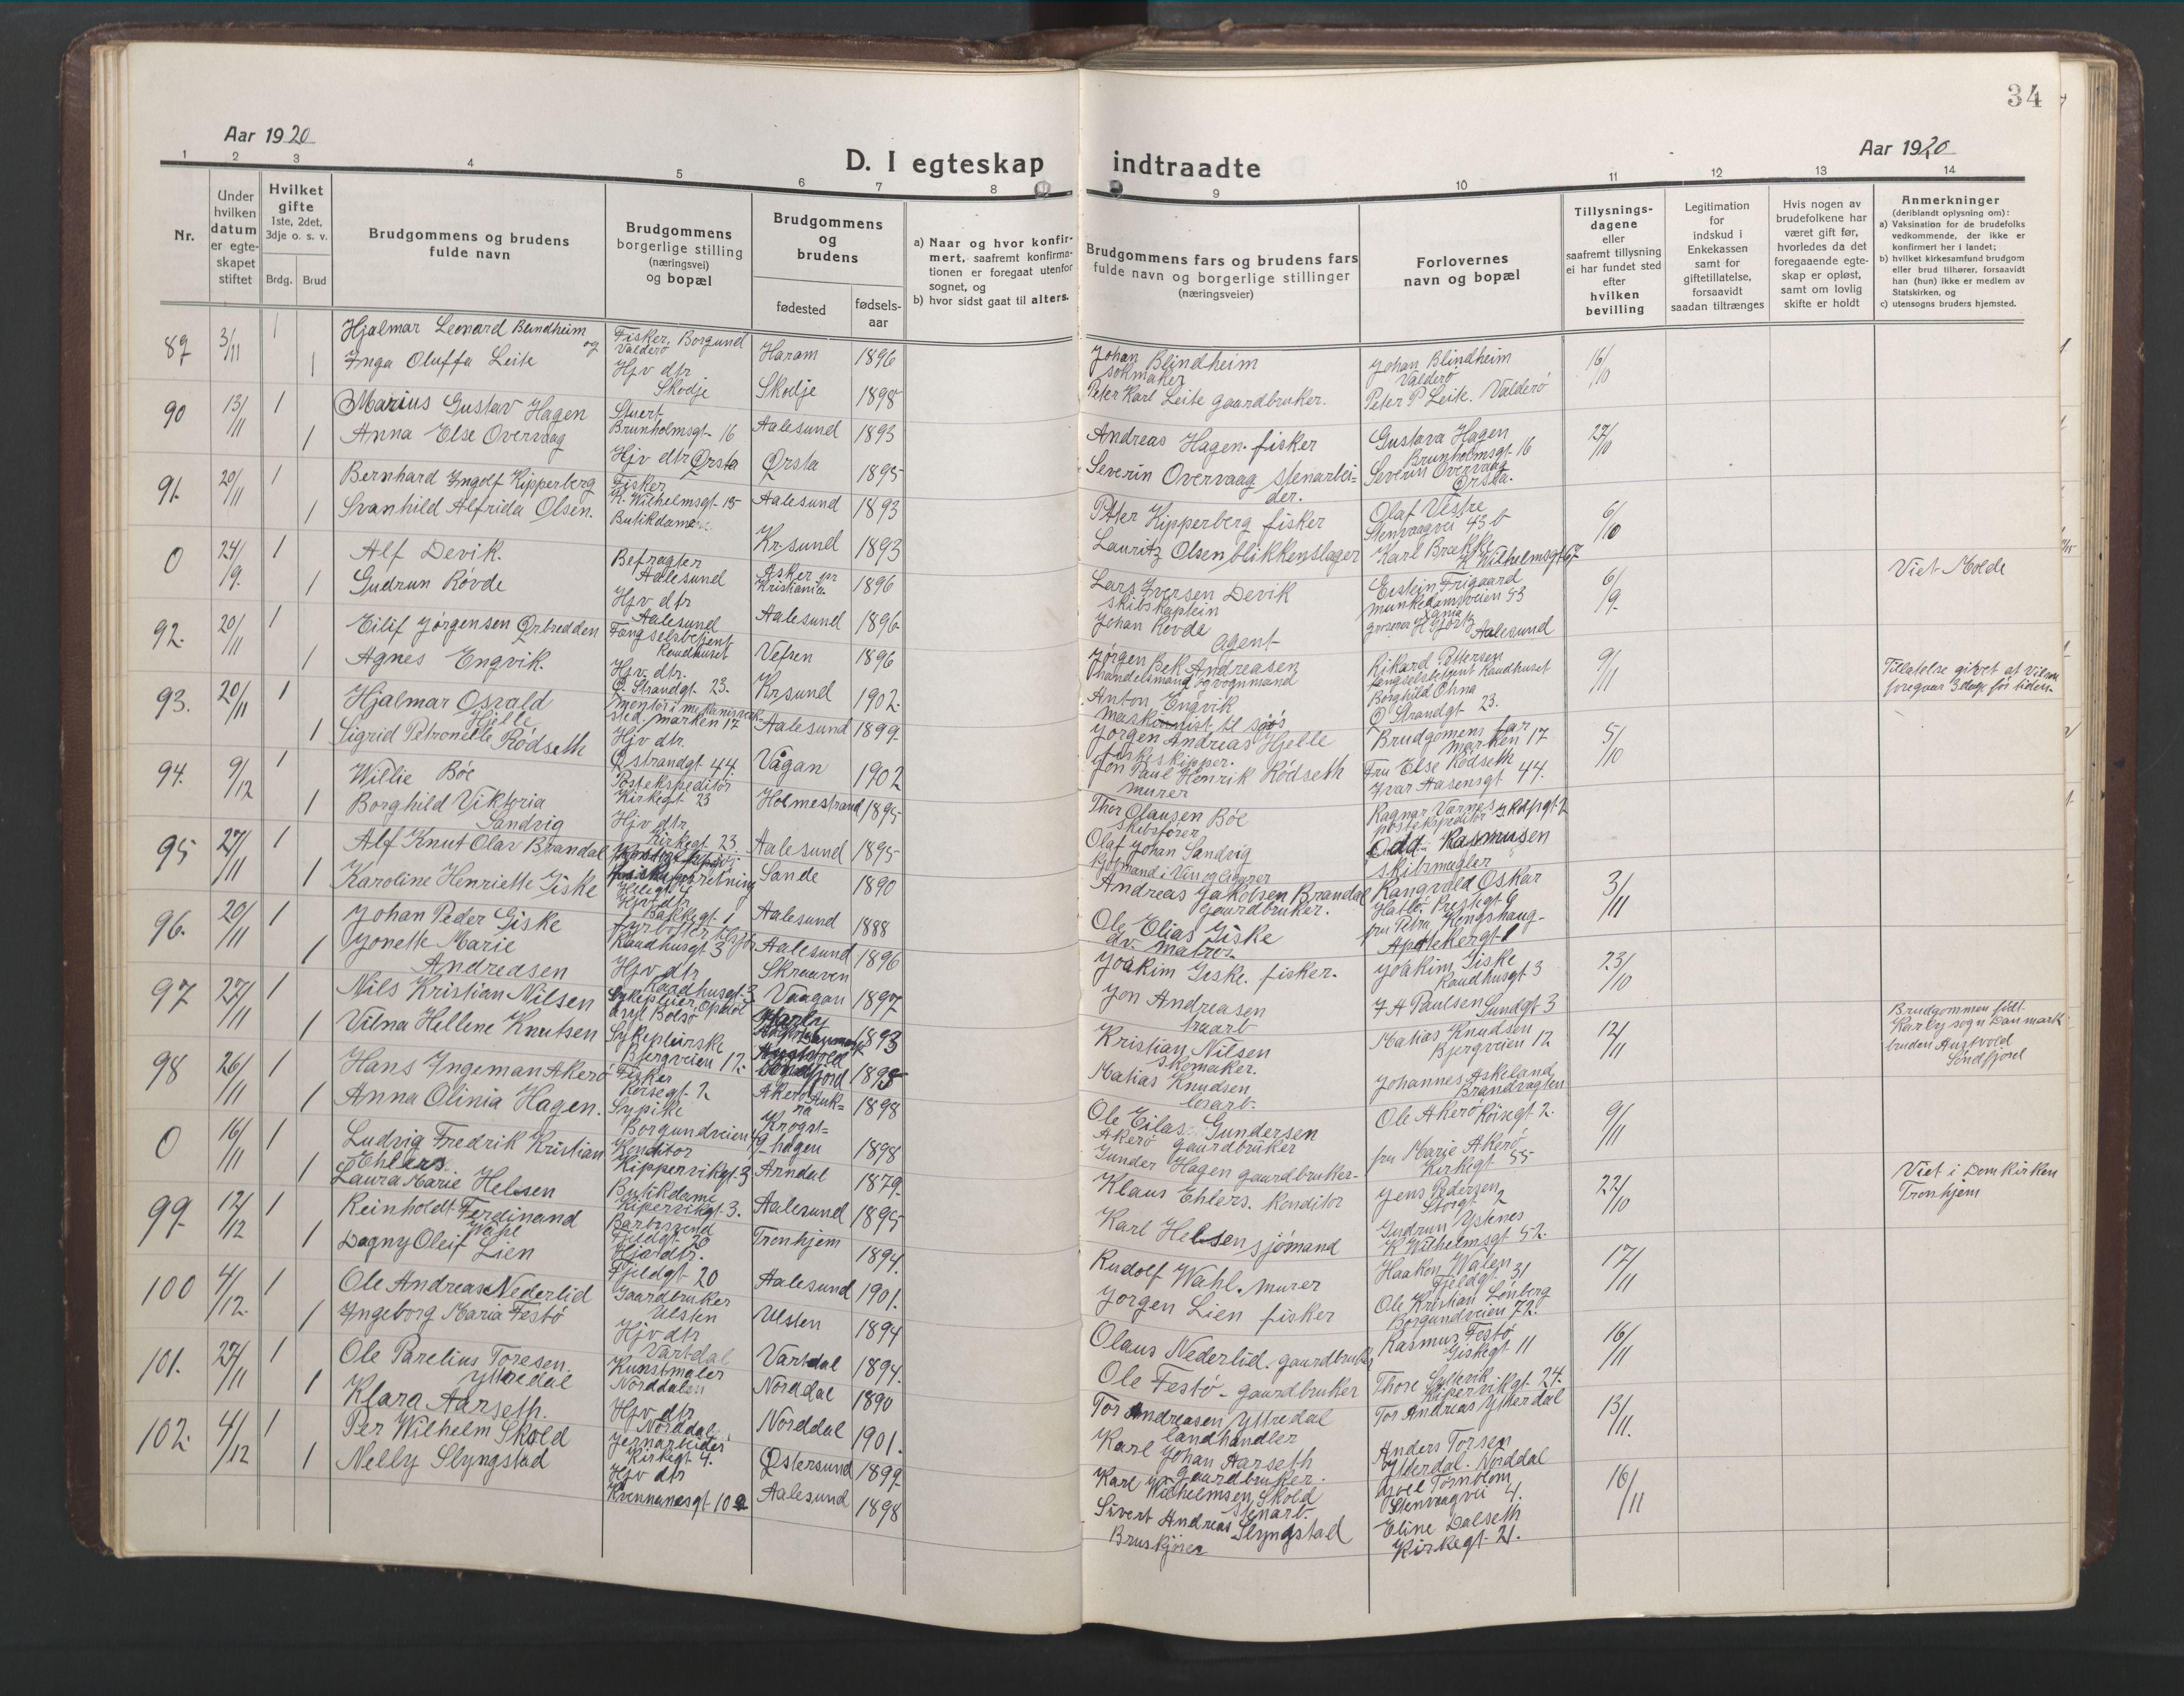 34
Aar 1920
Aar 1920
D. I egteskap indtraadte
1 2 3 4 5 6 7 8 9 10 11 12 13 14
Nr.
Under hvilken datum er egteskapet stiftet
Hvilket gifte 1ste, 2det, 3dje o. s. v.
Brdg. Brud
Brudgommens og brudens fulde navn
Brudgommens borgerlige stilling (næringsvei) og bopæl
Brudgommens og brudens
fødested
fødselsaar
a) Naar og hvor konfirmert, saafremt konfirmationen er foregaat utenfor sognet, og
b) hvor sidst gaat til alters.
Brudgommens fars og brudens fars fulde navn og borgerlige stillinger (næringsveier)
Forlovernes navn og bopæl
Tillysningsdagene eller saafremt tillysning ei har fundet sted efter hvilken bevilling
Legitimation for indskud i Enkekassen samt for giftetillatelse, forsaavidt saadan tiltrænges
Hvis nogen av brudefolkene har været gift før, hvorledes da det foregaaende egteskap er opløst, samt om lovlig skifte er holdt
Anmerkninger
(deriblandt oplysning om):
a) Vaksination for de brudefolks vedkommende, der ikke er konfirmert her i landet;
b) hvilket kirkesamfund brudgom eller brud tilhører, forsaavidt han (hun) ikke er medlem av Statskirken, og
c) utensogns bruders hjemsted.
89 3/11 1 Hjalmar Leonard Blindheim og Fisker, Borgund Valderö Haram 1896 Johan Blindheim Johan Blindheim Valderö 16/10
1 Inga Oluffa Leite Hjv dtr Skodje Skodje 1898 Peter Karl Leite gaardbruker. Peter P Leite. Valderö
90 13/11 1 Marius Gustav Hagen Stuert Brunholmsgt 16 Aalesund 1893 Andreas Hagen fisker Gustava Hagen Brunholmsgt 16 27/10
1 Anna Else Overvaag Hjv dtr Ørsta Ørsta 1895 Severin Overvaag stenarbeider. Severin Overvaag Ørsta.
91. 20/11 1 Bernhard Ingolf Kipperberg Fisker K. Wilhelmsgt 15 Aalesund 1893 Petter Kipperberg fisker Olaf Vestre Stenvaagvei 43 b 6/10
1 Svanhild Alfrida Olsen. Butikdame Kr.sund 1893 Lauritz Olsen blikkenslager Karl Brække K Wilhelmsgt 67
0 24/9. 1 Alf Devik. Befragter Aalesund Asker pr Kristiania 1896 Lars Iversen Devik skibskaptein 6/9. Viet Molde
1 Gudrun Rövde Hjv dtr Aalesund Aalesund 1896 Johan Rövde Agent Aalesund
92. 20/11 1 Eilif Jörgensen Ørbredden Fængselsbetjent Raadhuset Vefsen 1896 Jörgen Bek Andreasen handelsmand og vognmand Rikard Pettersen fængselsbetjent Raadhuset 9/11 Tillatelse givet at vilsen foregaar 3 dage før tiden.
1 Agnes Engvik. Hjv. dtr. Ø. Strandgt. 23. Kr.sund 1902 Anton Engvik maskinist til sjøs Borghild Ohna Ø Strandgt 23.
93. 20/11 1 Hjalmar Osvald Hjelle marken 17 Aalesund 1899 Jørgen Andreas Hjelle fiskeskipper. Brudgomens far marken 17 5/10
1 Sigrid Petronelle Rödseth Hjv dtr. Ø strandgt 44. Vågan 1902 Jon Paul Henrik Rödseth murer Fru Else Rödseth Ivar Aasensgt 44.
94. 9/12 1 Willie Böe Postekspeditör Kirkegt 23 Holmestrand 1895 Thor Olausen Böe skibsfører Ragnar Værnes postekspeditör
1 Borghild Viktoria Sandvig Hjv dtr Kirkegt 23. Aalesund 1895 Olaf Johan Sandvig Odd Rasmusen skibsmegler
95 27/11 1 Alf Knut Olav Brandal Sande 1890 Andreas Jakobsen Brandal gaardbruker. Rangvald Oskar 3/11
1 Karoline Henriette Giske Hjv dtr Bakkegt 1 Aalesund 1888 Ole Elias Giske dv. matros. fru Petra Apotekergt 1
96. 20/11 1 Johan Peder Giske Raadhusgt 3 Aalesund 1896 Joakim Giske. fisker. Joakim Giske Raadhusgt 3 23/10
1 Jonette Marie Andreasen Hjv dtr Raadhusgt 3 Skraaven Vaagan 1897 Jon Andreasen J A Paulsen Sundgt 3
97 27/11 1 Nils Kristian Nilsen Sykepleier 1893 Kristian Nilsen skomaker. Matias Knudsen Bjergveien 12 12/11 Brudgommen født Karby sogn Danmark
1 Vilna Hellene Knutsen Sykepleirske Bjergveien 12. 1895 Matias Knudsen bruden Austvold Söndfjord
98 26/11 1 Hans Ingeman Akerö Fisker Akerö Aukra 1898 Ole Eilas Gundersen Akerö gaardbruker Johannes Askeland Brandvagten Ole Akerö 9/11
1 Anna Olinia Hagen. Sypike Borgundveien 49 Krogsthagen 1898 Gunder Hagen gaardbruker fru Marie Akerö Kirkegt 55
0 16/11 1 Ludvig Fredrik Kristian Ehlers Konditor Kippervikgt 3 Arndal 1879 Klaus Ehlers. Konditor Jens Pedersen Storgt 2 22/10 Viet i Domkirken Tronhjem
1 Laura Marie Helsen Butikdame Kipervikgt 3. Aalesund 1895 Karl Helsen sjömand Gudrun Ystenes K Wilhelmsgt 52.
99 12/12 1 Reinholdt Ferdinand Wahl Fjeldgt 20 Tronhjem 1894. Rudolf Wahl. murer Haakon Walen Fjeldgt 31 17/11
1 Dagny Oleif Lien Hjv dtr. Fjeldgt 20 Aalesund 1901. Jörgen Lien fisker Ole Kristian Lönberg Borgundveien 72.
100 4/12. 1 Ole Andreas Nederlid Gaardbruker Ulsten Ulsten 1894 Olaus Nederlid. gaardbruker Rasmus Festö Giskegt 11 16/11
1 Ingeborg Maria Festö Hjv dtr Vartdal Vartdal 1894. Ole Festö gaardbruker Thore Kipervikgt. 24.
101. 27/11 1 Ole Parelius Toresen Yttredal Kunstmaler Norddalen Norddal 1890 Tor Andreasen Yttredal landhandler Tor Andreas Ytterdal 13/11.
1 Klara Aarseth. Hjv dtr Norddal. Norddal 1901. Karl Johan Aarseth gaardbruker. Anders Torsen Ytterdal. Norddal
102. 4/12 1 Per Wilhelm Skold Jernarbeider Kirkegt 4. Østersund 1899 Karl Wilhelmsen Skold stenarb. Joel Tornblom Stenvaagvei 4. 16/11
1 Nelly Slyngstad Hjv dtr Kvennanesgt 10 a Aalesund 1898 Sivert Andreas Slyngstad Bruskjörer Eline Dalseth Kirkegt 21.